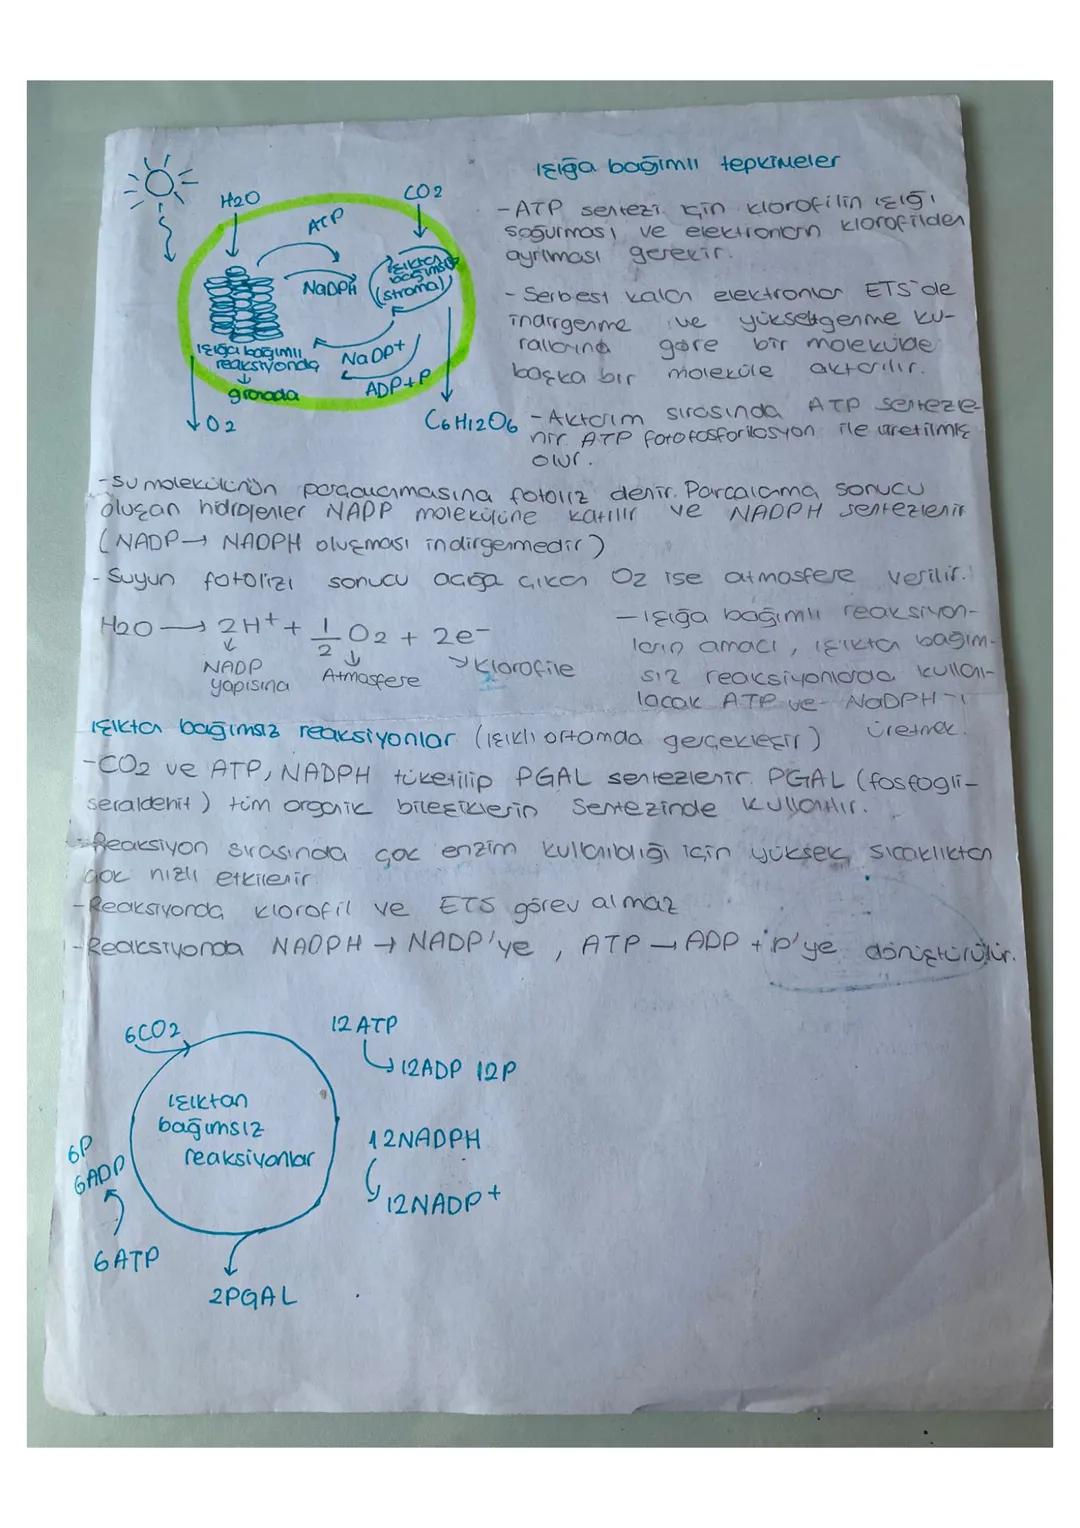 H2O
CO2
ATP
NaDPH
Işıktan
bağımsız
(stroma)
Işığa bağımlı
reaksiyonda
granada
NaDP+
ADP+P
O2
C6H12O6
Işığa bağımlı tepkimeler
-ATP sentezi için klorofilin ışığı
soğurması ve elektronların klorofilden
ayrılması gerekir.
- Serbest kalan elektronlar ETS'de
indirgenme ve yükseltgenme ku-
rallarına göre bir molekülde
başka bir moleküle aktarılır.
-Aktarım sırasında ATP sentezle-
nir. ATP fotofosforilasyon ile üretilmiş
olur.
-Su molekülünün parçalanmasına fotoliz denir. Parçalama sonucu
oluşan hidrojenler NADP molekülüne katılır ve NADPH sentezlenir
(NADP→ NADPH oluşması indirgenmedir)
- Suyun fotolizi sonucu açığa çıkan O2 ise atmosfere verilir.
H2O → 2H+ + 1/2 O2 + 2e-
NADP
yapısına
Atmosfere
Klorofile
-Işığa bağımlı reaksiyon-
ların amacı, ışıktan bağım-
sız reaksiyonlarda kullanı-
lacak ATP ve NaDPH'ı
üretmek.
Işıktan bağımsız reaksiyonlar (ışıklı ortamda gerçekleşir)
-CO2 ve ATP, NADPH tüketilip PGAL sentezlenir. PGAL (fosfogli-
seraldehit) tüm organik bileşiklerin sentezinde kullanılır.
-Reaksiyon sırasında çok enzim kullanıldığı için yüksek sıcaklıktan
çok hızlı etkilenir
-Reaksiyonda klorofil ve ETS görev almaz
-Reaksiyonda NADPH → NADP'ye, ATP → ADP + P'ye dönüştürülür.
6CO2
12 ATP
12ADP 12P
Işıktan
bağımsız
reaksiyonlar
12NADPH
12NADP+
6P
6ADP
6ATP
2PGAL